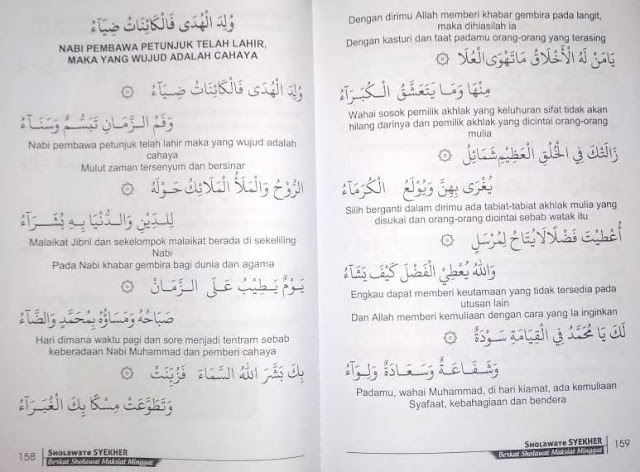 وُلِدَ الْهُدَى فَالْكَائِنَاتُ ضِيَآءُ
NABI PEMBAWA PETUNJUK TELAH LAHIR,
MAKA YANG WUJUD ADALAH CAHAYA
وُلِدَ الْهُدَى فَالْكَائِنَاتُ ضِيَآءُ ۞
وَفَمُ الزَّمَانِ تَبَسُّمٌ وَسَنَآءُ
Nabi pembawa petunjuk telah lahir maka yang wujud adalah
cahaya
Mulut zaman tersenyum dan bersinar
الرُّوْحُ وَالْمَلَأُ الْمَلَائِكُ حَوْلَهُ ۞
لِلدِّيْنِ وَالدُّنْيَا بِهِ بُشَرَآءُ
Malaikat Jibril dan sekelompok malaikat berada di sekeliling
Nabi
Pada Nabi khabar gembira bagi dunia dan agama
يَوْمٌ يَطِيْبُ عَلَى الزَّمَانِ ۞
صَبَاحُهُ وَمَسَاؤُهُ بِمُحَمَّدٍ وَالضَّآءُ
Hari dimana waktu pagi dan sore menjadi tentram sebab
keberadaan Nabi Muhammad dan pemberi cahaya
بِكَ بَشَّرَ اللهُ السَّمَاءَ فَزُيِّنَتْ ۞
وَتَطَوَّعَتْ مِسْكًا بِكَ الْغُبَرَآءُ
158
SHOLAWATE SYEKHER
Berkat Sholawat Maksiat Minggat
Dengan dirimu Allah memberi khabar gembira pada langit,
maka dihiasilah ia
Dengan kasturi dan taat padamu orang-orang yang terasing
يَامَنْ لَهُ الْأَخْلَاقُ مَاتَهْوَى الْعُلَا ۞
مِنْهَا وَمَا يَتَعَشَّقُ الْكُبَرَآءُ
Wahai sosok pemilik akhlak yang keluhuran sifat tidak akan
hilang darinya dan pemilik akhlak yang dicintai orang-orang
mulia
زَانَتْكَ فِي الْخُلُقِ الْعَظِيْمِ شَمَائِلُ ۞
يُغْرَى بِهِنَّ وَيُوْلَعُ الْكُرَمَآءُ
Silih berganti dalam dirimu ada tabiat-tabiat akhlak mulia yang
disukai dan orang-orang dicintai sebab watak itu
أُعْطِيْتَ فَضْلًا لَا يُتَاحُ لِمُرْسَلٍ ۞
وَاللهُ يُعْطِي الْفَضْلَ كَيْفَ يَشَآءُ
Engkau dapat memberi keutamaan yang tidak tersedia pada
utusan lain
Dan Allah memberi kemuliaan dengan cara yang Ia inginkan
لَكَ يَا مُحَمَّدُ فِي الْقِيَامَةِ سَوْدَةٌ ۞
وَشَفَاعَةٌ وَسَعَادَةٌ وَلِوَآءُ
Padamu, wahai Muhammad, di hari kiamat, ada kemuliaan
Syafaat, kebahagiaan dan bendera
SHOLAWATE SYEKHER
Berkat Sholawat Maksiat Minggat
159